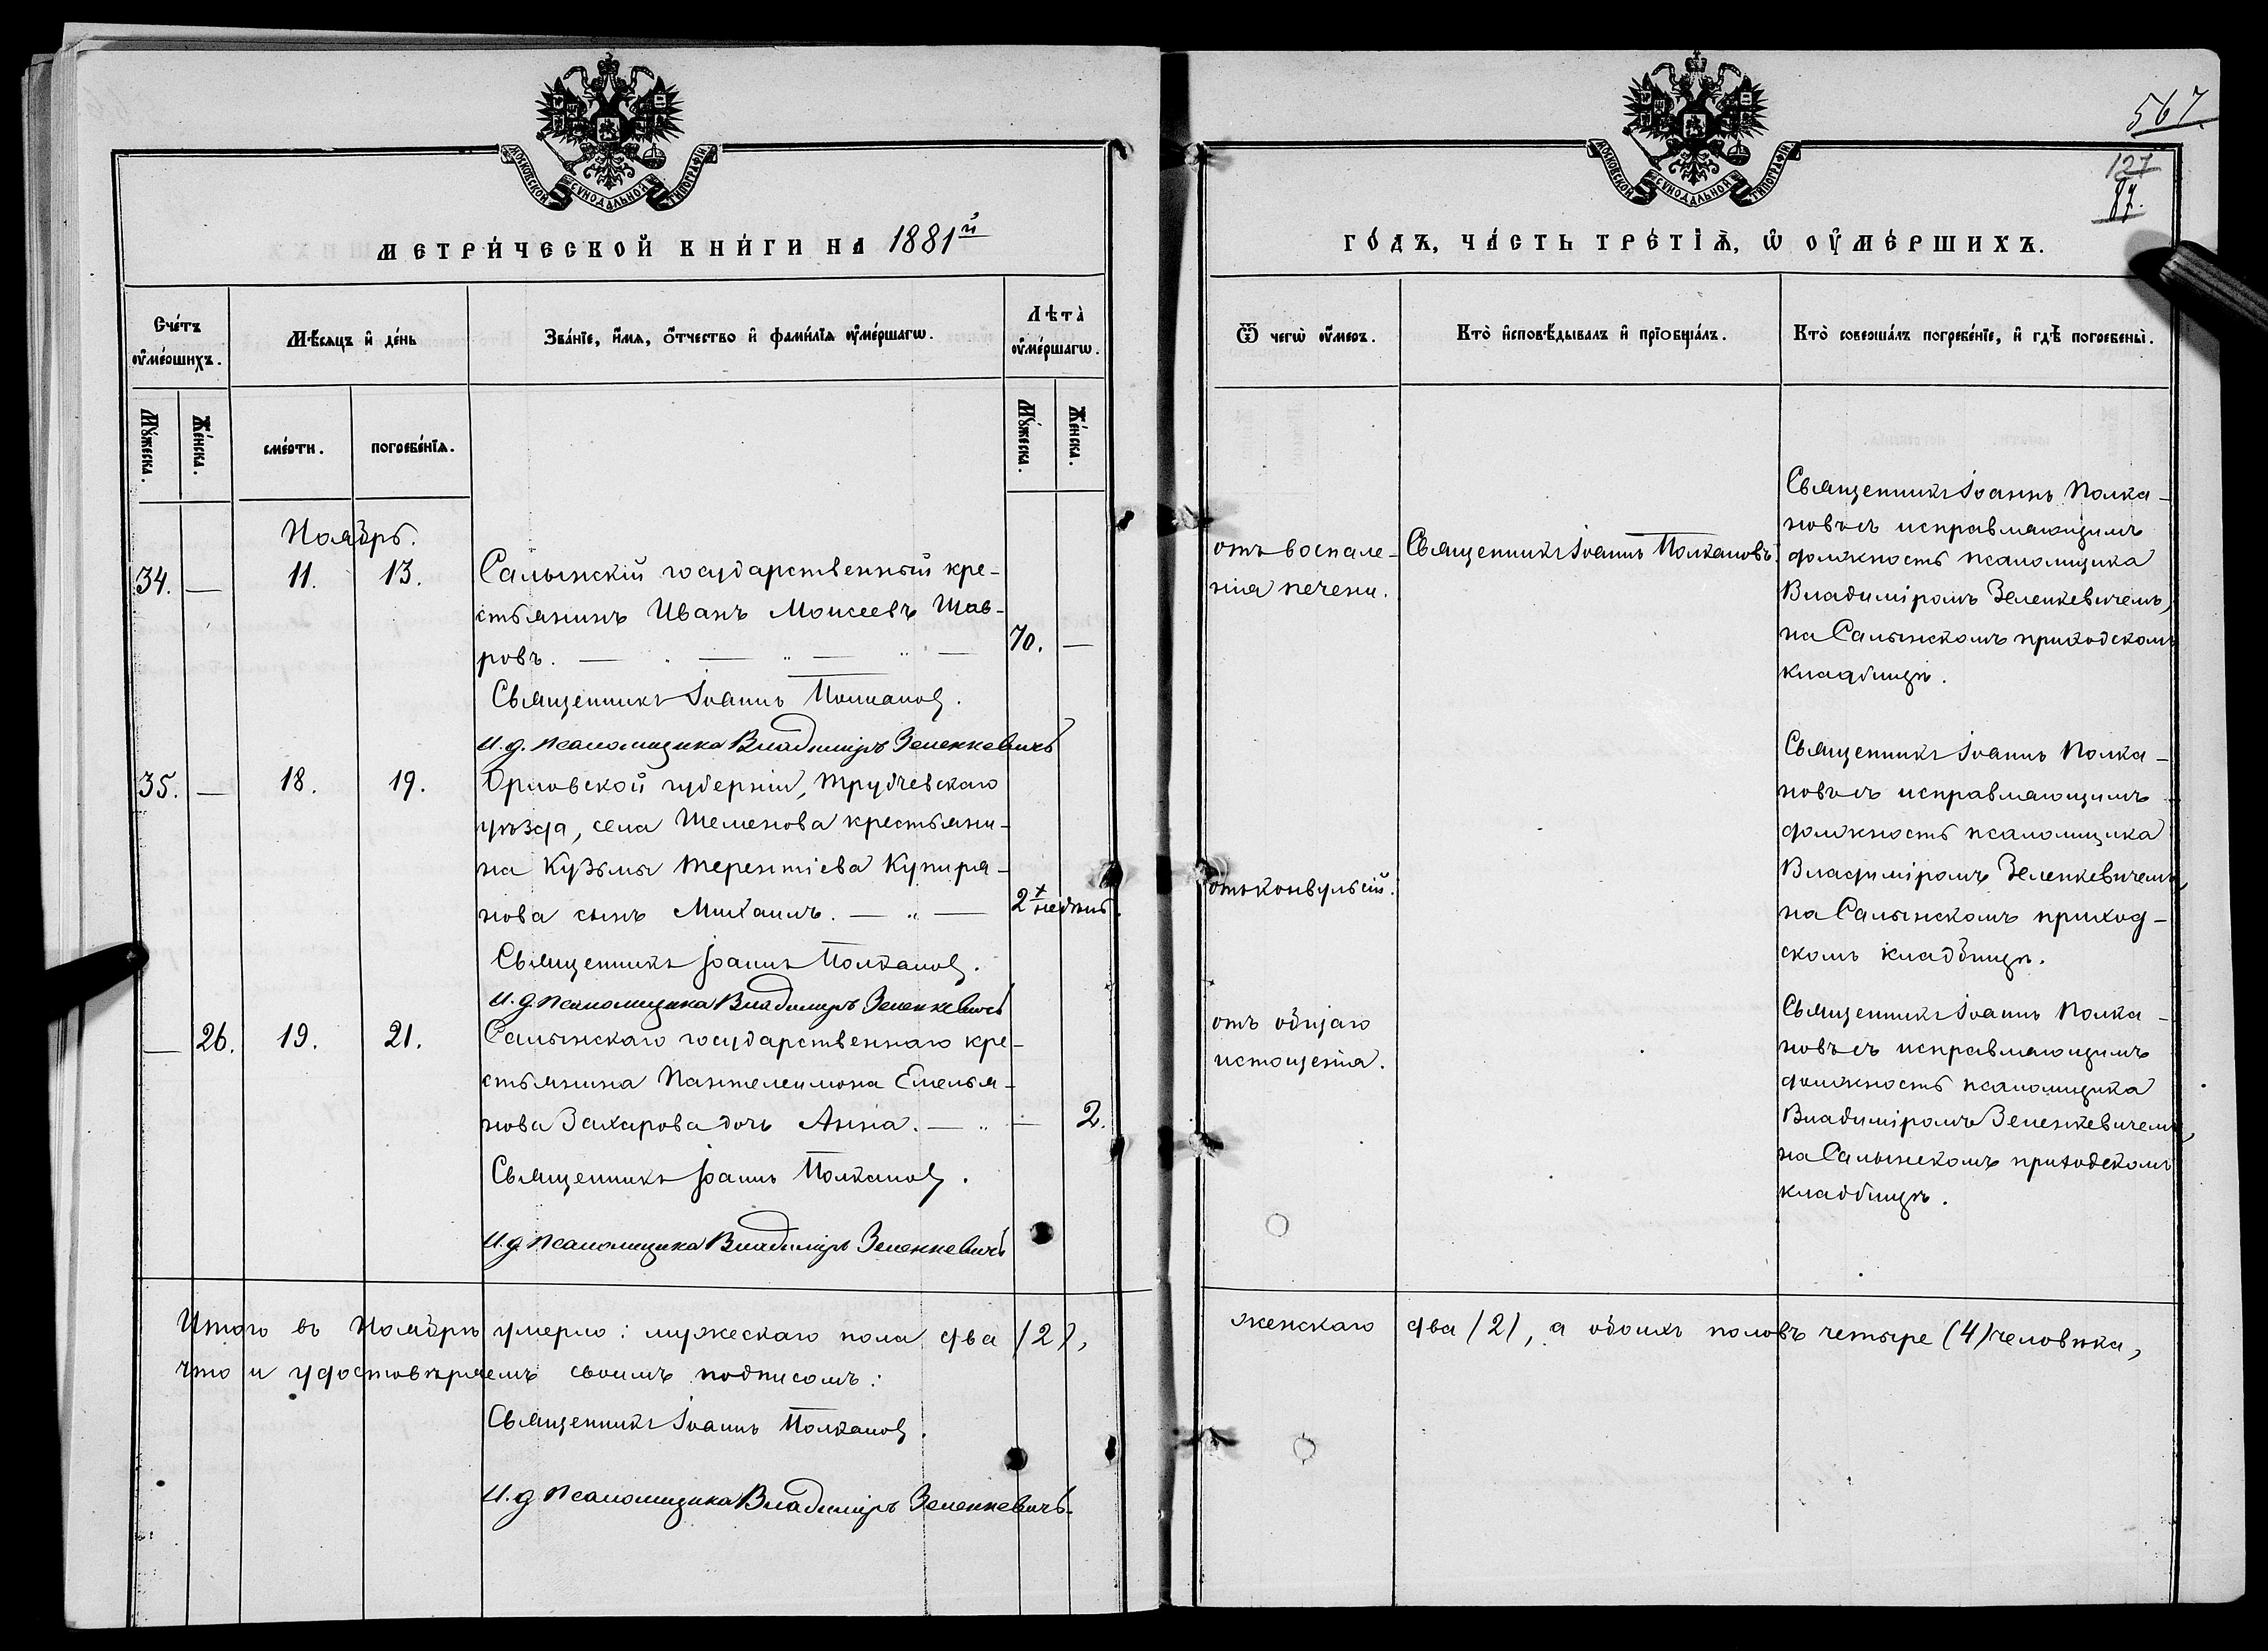 МОСКОВСКОЙ СУНОДАЛЬНОЙ ТИПОГРАФІИ
МЕТРИ́ЧЕСКОЙ КНИ́ГИ НА 1881й
Сче́тъ ᲂу҆ме́ршихъ.
Мѣ́сяцъ и҆ де́нь
Зва́нїе, и҆́мя, ѻ҆́тчество и҆ фами́лїя ᲂу҆ме́ршагѡ.
Лѣта̀ ᲂу҆ме́ршагѡ.
Мꙋ́жеска.
Же́нска.
сме́рти.
погребе́нїѧ.
Мꙋ́жеска.
Же́нска.
Ноябрь.
34. — 11. 13. Салынскій государственный кре-
стьянинъ Иванъ Моисеевъ Шав-
ровъ. — . — „ — „ — 70. —
Священникъ Іоаннъ Полкановъ.
И.д. псаломщика Владиміръ Зеленкевичъ
35. — 18. 19. Орловской губерніи, Трубчевскаго
уѣзда, села Шеменова крестьяни-
на Кузьмы Терентіева Купиря-
нова сынъ Михаилъ. — „ — 2 недѣль.
Священникъ Іоаннъ Полкановъ.
И.д. псаломщика Владиміръ Зеленкевичъ
— 26. 19. 21. Салынскаго государственнаго кре-
стьянина Пантелеимона Емелья-
нова Захарова дочь Анна. — „ — 2.
Священникъ Іоаннъ Полкановъ.
И.д. псаломщика Владиміръ Зеленкевичъ
Итого въ Ноябрѣ умерло: мужескаго пола два (2),
что и удостовѣряемъ своимъ подписомъ:
Священникъ Іоаннъ Полкановъ.
И.д псаломщика Владиміръ Зеленкевичъ.
567
127
МОСКОВСКОЙ СУНОДАЛЬНОЙ ТИПОГРАФІИ
ГО́ДЪ, ЧА́СТЬ ТРЕ́ТІѦ, Ѡ҆ ОУ҆МЕ́РШИХЪ.
Ѿ чегѡ̀ ᲂу҆́меръ.
Кто̀ и҆сповѣ́дывалъ и҆ прїѻбща́лъ.
Кто̀ соверша́лъ погребе́нїе, и҆ гдѣ̀ погребены̀.
отъ воспале-
нія печени.
Священникъ Іоаннъ Полкановъ.
Священникъ Іоаннъ Полка-
новъ съ исправляющимъ
должность псаломщика
Владиміромъ Зеленкевичемъ,
на Салынскомъ приходскомъ
кладбищѣ.
отъ конвульсій.
Священникъ Іоаннъ Полка-
новъ съ исправляющимъ
должность псаломщика
Владиміромъ Зеленкевичемъ,
на Салынскомъ приход-
скомъ кладбищѣ.
отъ общаго
истощенія.
Священникъ Іоаннъ Полка-
новъ съ исправляющимъ
должность псаломщика
Владиміромъ Зеленкевичемъ,
на Салынскомъ приходскомъ
кладбищѣ.
женскаго два (2), а обоихъ половъ четыре (4) человѣка,